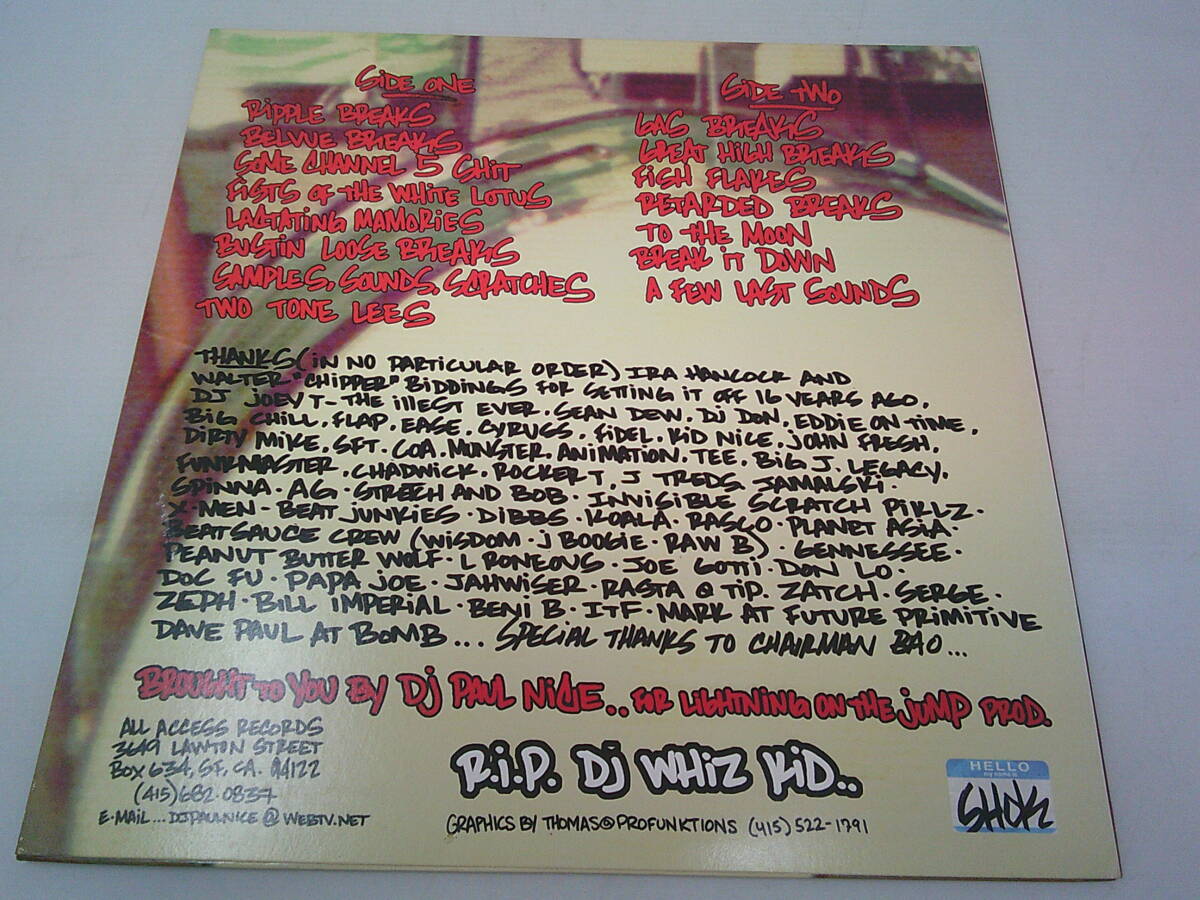 SIDE ONE
RIPPLE BREAKS
BELVUE BREAKS
SOME CHANNEL 5 SHIT
FISTS OF THE WHITE LOTUS
LACTATING MAMORIES
BUSTIN LOOSE BREAKS
SAMPLES, SOUNDS, SCRATCHES
TWO TONE LEES
SIDE TWO
GAS BREAKS
GREAT HIGH BREAKS
FISH FLAKES
RETARDED BREAKS
TO THE MOON
BREAK IT DOWN
A FEW LAST SOUNDS
THANKS (IN NO PARTICULAR ORDER) IRA HANCOCK AND
WALTER "CHIPPER" BIDDINGS FOR GETTING IT OFF 16 YEARS AGO.
DJ JOEY T - THE ILLEST EVER. SEAN DEW. DJ DON. EDDIE ON TIME.
BIG CHILL. FLAP. EASE. CYRUSS. FIDEL. KID NICE. JOHN FRESH.
DIRTY MIKE. SFT. COA. MUNSTER. ANIMATION. TEE. BIG J. LEGACY.
FUNKMASTER. CHADWICK. ROCKER T. J TREDS JAMALSKI.
SPINNA. AG. STRETCH AND BOB. INVISIBLE SCRATCH PIKLZ.
X-MEN - BEAT JUNKIES. DIBBS. KOALA. RASCO. PLANET ASIA.
BEATSAUCE CREW (WISDOM. J BOOGIE. RAW B). GENNESSEE.
PEANUT BUTTER WOLF. L RONEOUS. JOE GOTTI. DON LO.
DOC FU. PAPA JOE. JAHWISER. RASTA Q TIP. ZATCH. SERGE.
ZEPH. BILL IMPERIAL. BENI B. ITF. MARK AT FUTURE PRIMITIVE
DAVE PAUL AT BOMB... SPECIAL THANKS TO CHAIRMAN BAO...
BROUGHT TO YOU BY DJ PAUL NICE.. FOR LIGHTNING ON THE JUMP PROD.
ALL ACCESS RECORDS
3649 LAWTON STREET
BOX 634, SF, CA. 94122
(415) 682.0837
E-MAIL... DJPAULNICE@WEBTV.NET
R.I.P. DJ WHIZ KID..
GRAPHICS BY THOMAS@PROFUNKTIONS (415) 522-1791
HELLO
my name is
SHOK